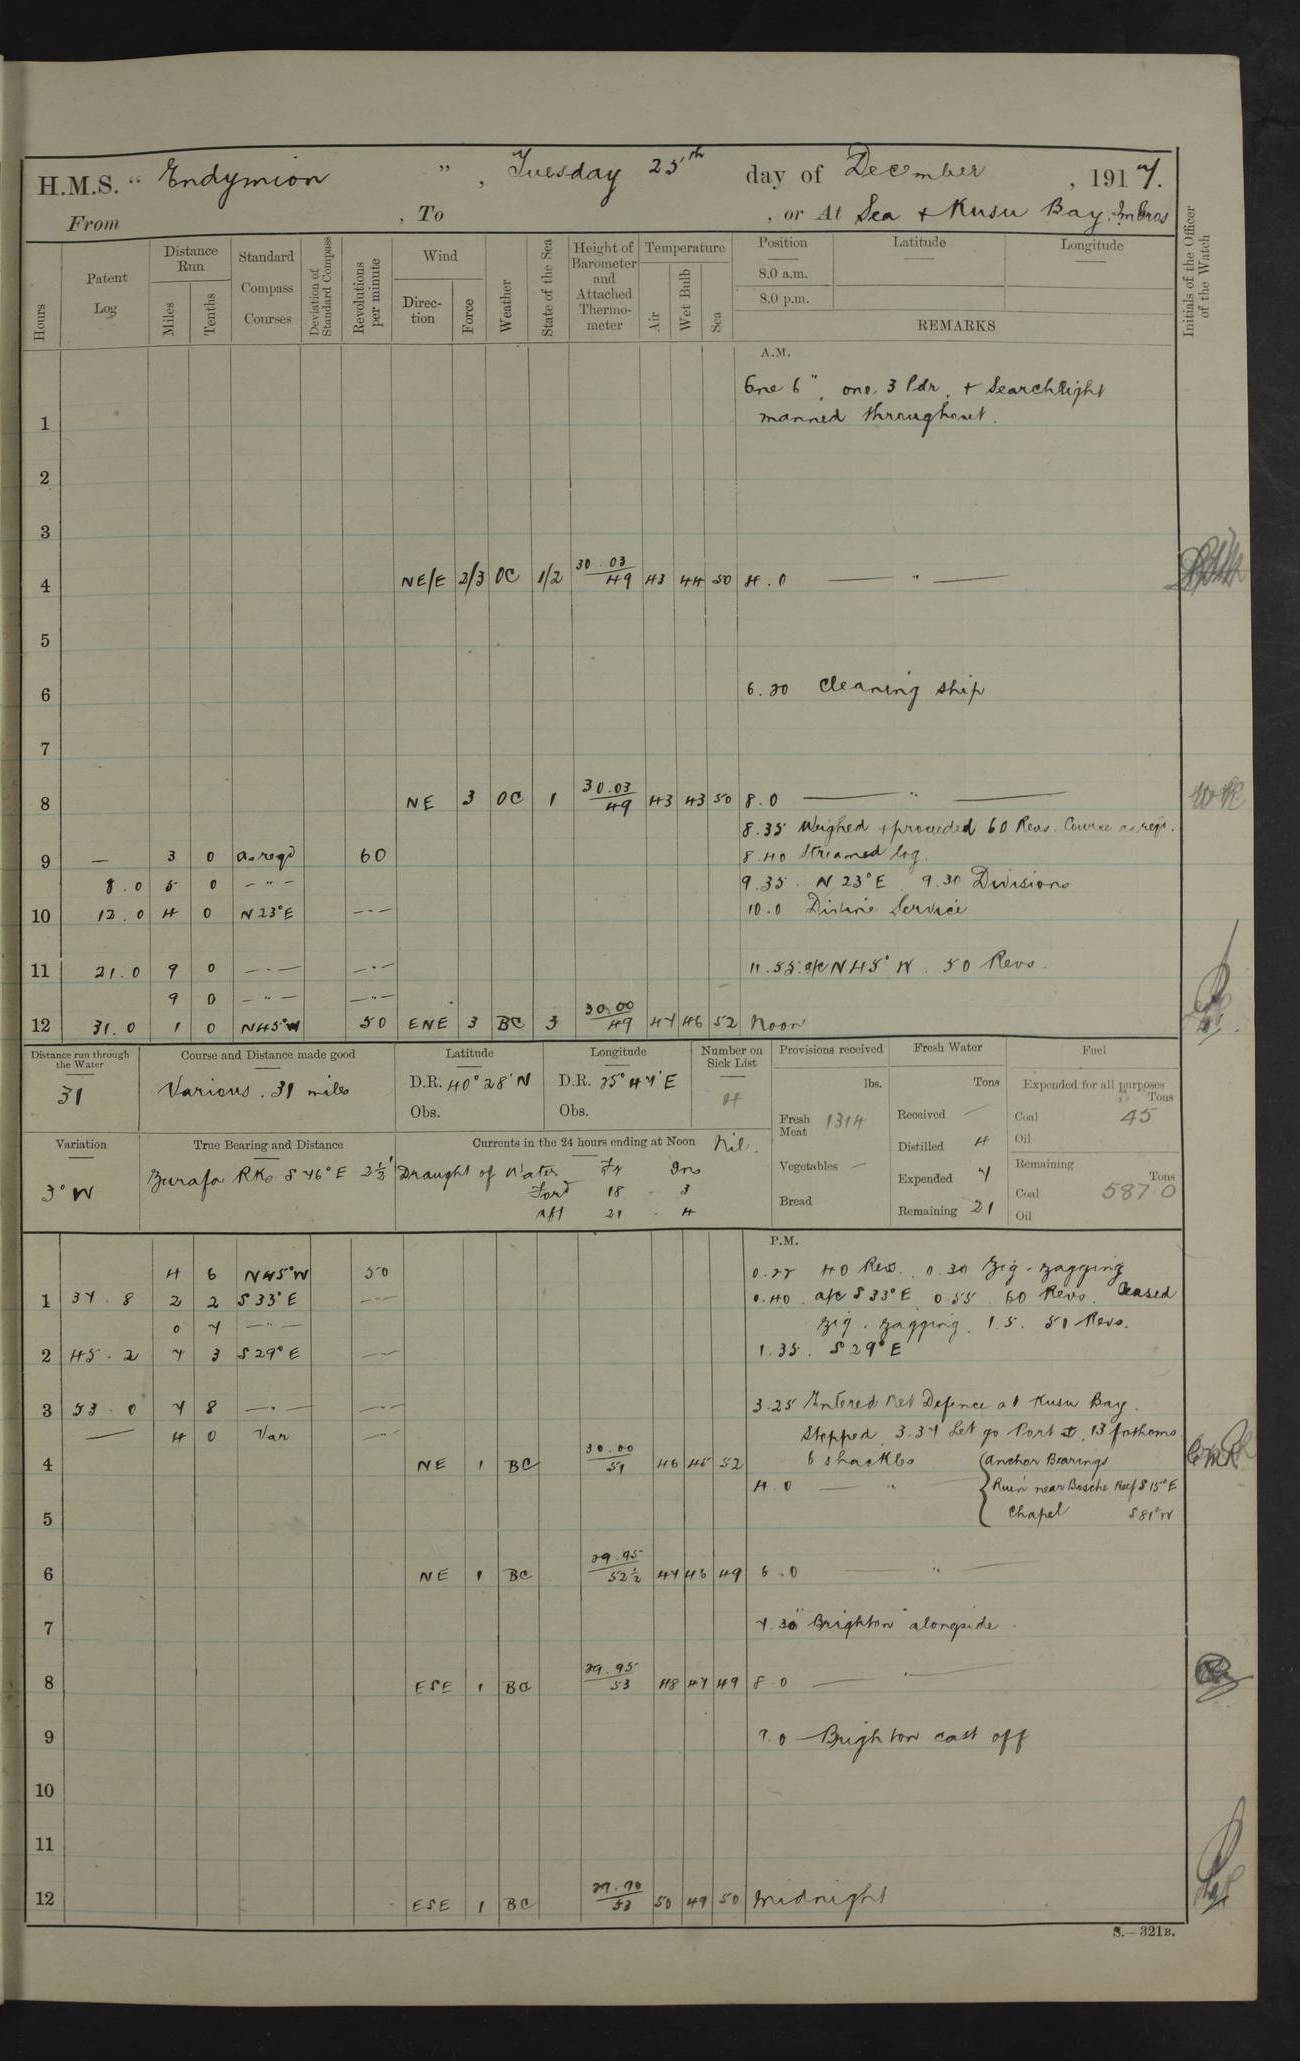 H.M.S. " Endymion ", Tuesday 25th day of December, 1917.
From , To , or At Sea + Kusu Bay. Imbros
Hours
Patent Log
Distance Run
Miles
Tenths
Standard Compass Courses
Deviation of Standard Compass
Revolutions per minute
Wind
Direc-tion
Force
Weather
State of the Sea
Height of Barometer and Attached Thermo-meter
Temperature
Air
Wet Bulb
Sea
Position
8.0 a.m.
8.0 p.m.
Latitude
Longitude
REMARKS
Initials of the Officer of the Watch
A.M.
One 6", one 3 Pdr. + Searchlight
1 manned throughout.
2
3
4 NE/E 2/3 OC 1/2 30.03 49 43 44 50 4.0 — " —
5
6 6.20 Cleaning ship
7
8 NE 3 OC 1 30.03 49 43 43 50 8.0 — " —
8.35 Weighed + proceeded 60 Revs. Course as reqd.
9 — 3 0 as reqd 60 8.40 Streamed log.
8.0 5 0 — " — 9.35. N 23° E 9.30 Divisions
10 12.0 4 0 N 23° E — " — 10.0 Divine Service
11 21.0 9 0 — " — — " — 11.55. a/c N 45° W. 50 Revs.
9 0 — " — — " —
12 31.0 1 0 N45°W 50 ENE 3 BC 3 30.00 49 47 46 52 Noon
Distance run through the Water
31
Course and Distance made good
Various. 31 miles
Latitude
D.R. 40° 28' N
Obs.
Longitude
D.R. 25° 47' E
Obs.
Number on Sick List
4
Provisions received
lbs.
Fresh Meat 1314
Vegetables —
Bread
Fresh Water
Tons
Received —
Distilled 4
Expended 7
Remaining 21
Fuel
Expended for all purposes
Tons
Coal 45
Oil
Remaining
Tons
Coal 587 0
Oil
Variation
3° W
True Bearing and Distance
Zurafa Rks S 76° E 2½'
Currents in the 24 hours ending at Noon Nil.
Draught of Water Ft Ins
Ford 18 - 3
Aft 21 - 4
P.M.
4 6 N45°W 50 0.27 40 Revs. 0.30 Zig-zagging
1 37.8 2 2 S 33° E — " — 0.40. a/c S 33° E 0.55 60 Revs. Ceased
0 7 — " — zig-zagging. 1.5. 51 Revs.
2 45.2 7 3 S 29° E — " — 1.35. S 29° E
3 53.0 7 8 — " — — " — 3.25 Entered Net Defence at Kusu Bay.
— 4 0 Var — " — Stopped 3.37 Let go Port 13 fathoms
4 NE 1 BC 30.00 51 46 45 52 6 shackles Anchor Bearings
4.0 — " — Ruin near Bosche Reef S 15° E
5 Chapel S 81° W
6 NE 1 BC 29.95 52½ 47 46 49 6.0 — " —
7 7.30 "Brighton" alongside.
8 ESE 1 BC 29.95 53 48 47 49 8.0 — " —
9 9.0 Brighton cast off
10
11
12 ESE 1 BC 29.90 53 50 49 50 Midnight
S.—321B.